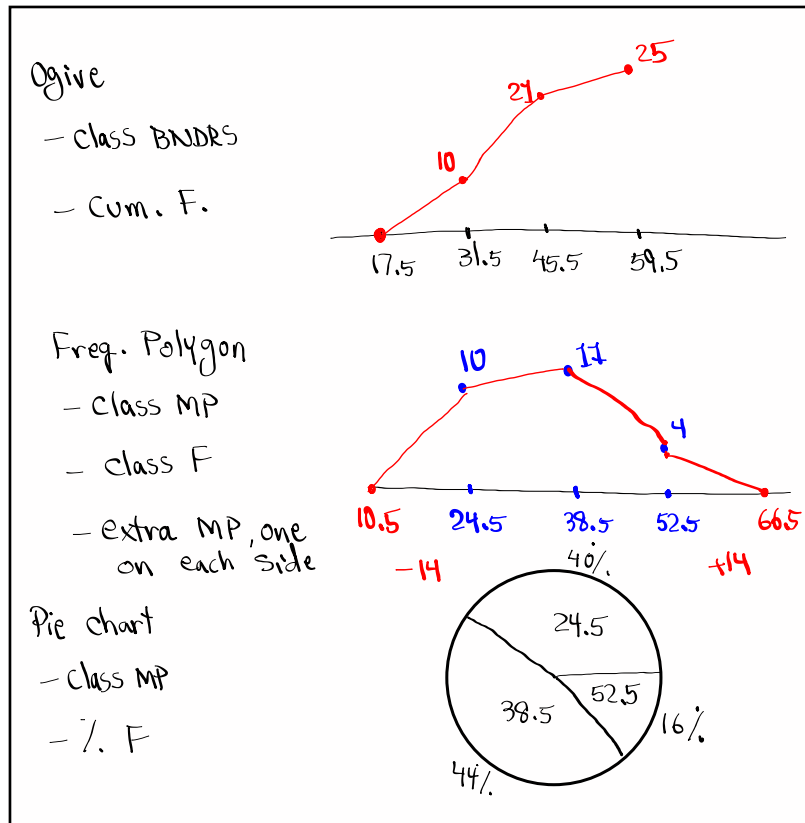 Ogive
- Class BNDRS
- Cum. F.
25
21
10
17.5 31.5 45.5 59.5
Freq. Polygon
- Class MP
- Class F
- extra MP, one
on each side
10 11
4
10.5 24.5 38.5 52.5 66.5
-14 +14
Pie chart
- Class MP
- % F
40%
24.5
52.5
38.5
16%
44%